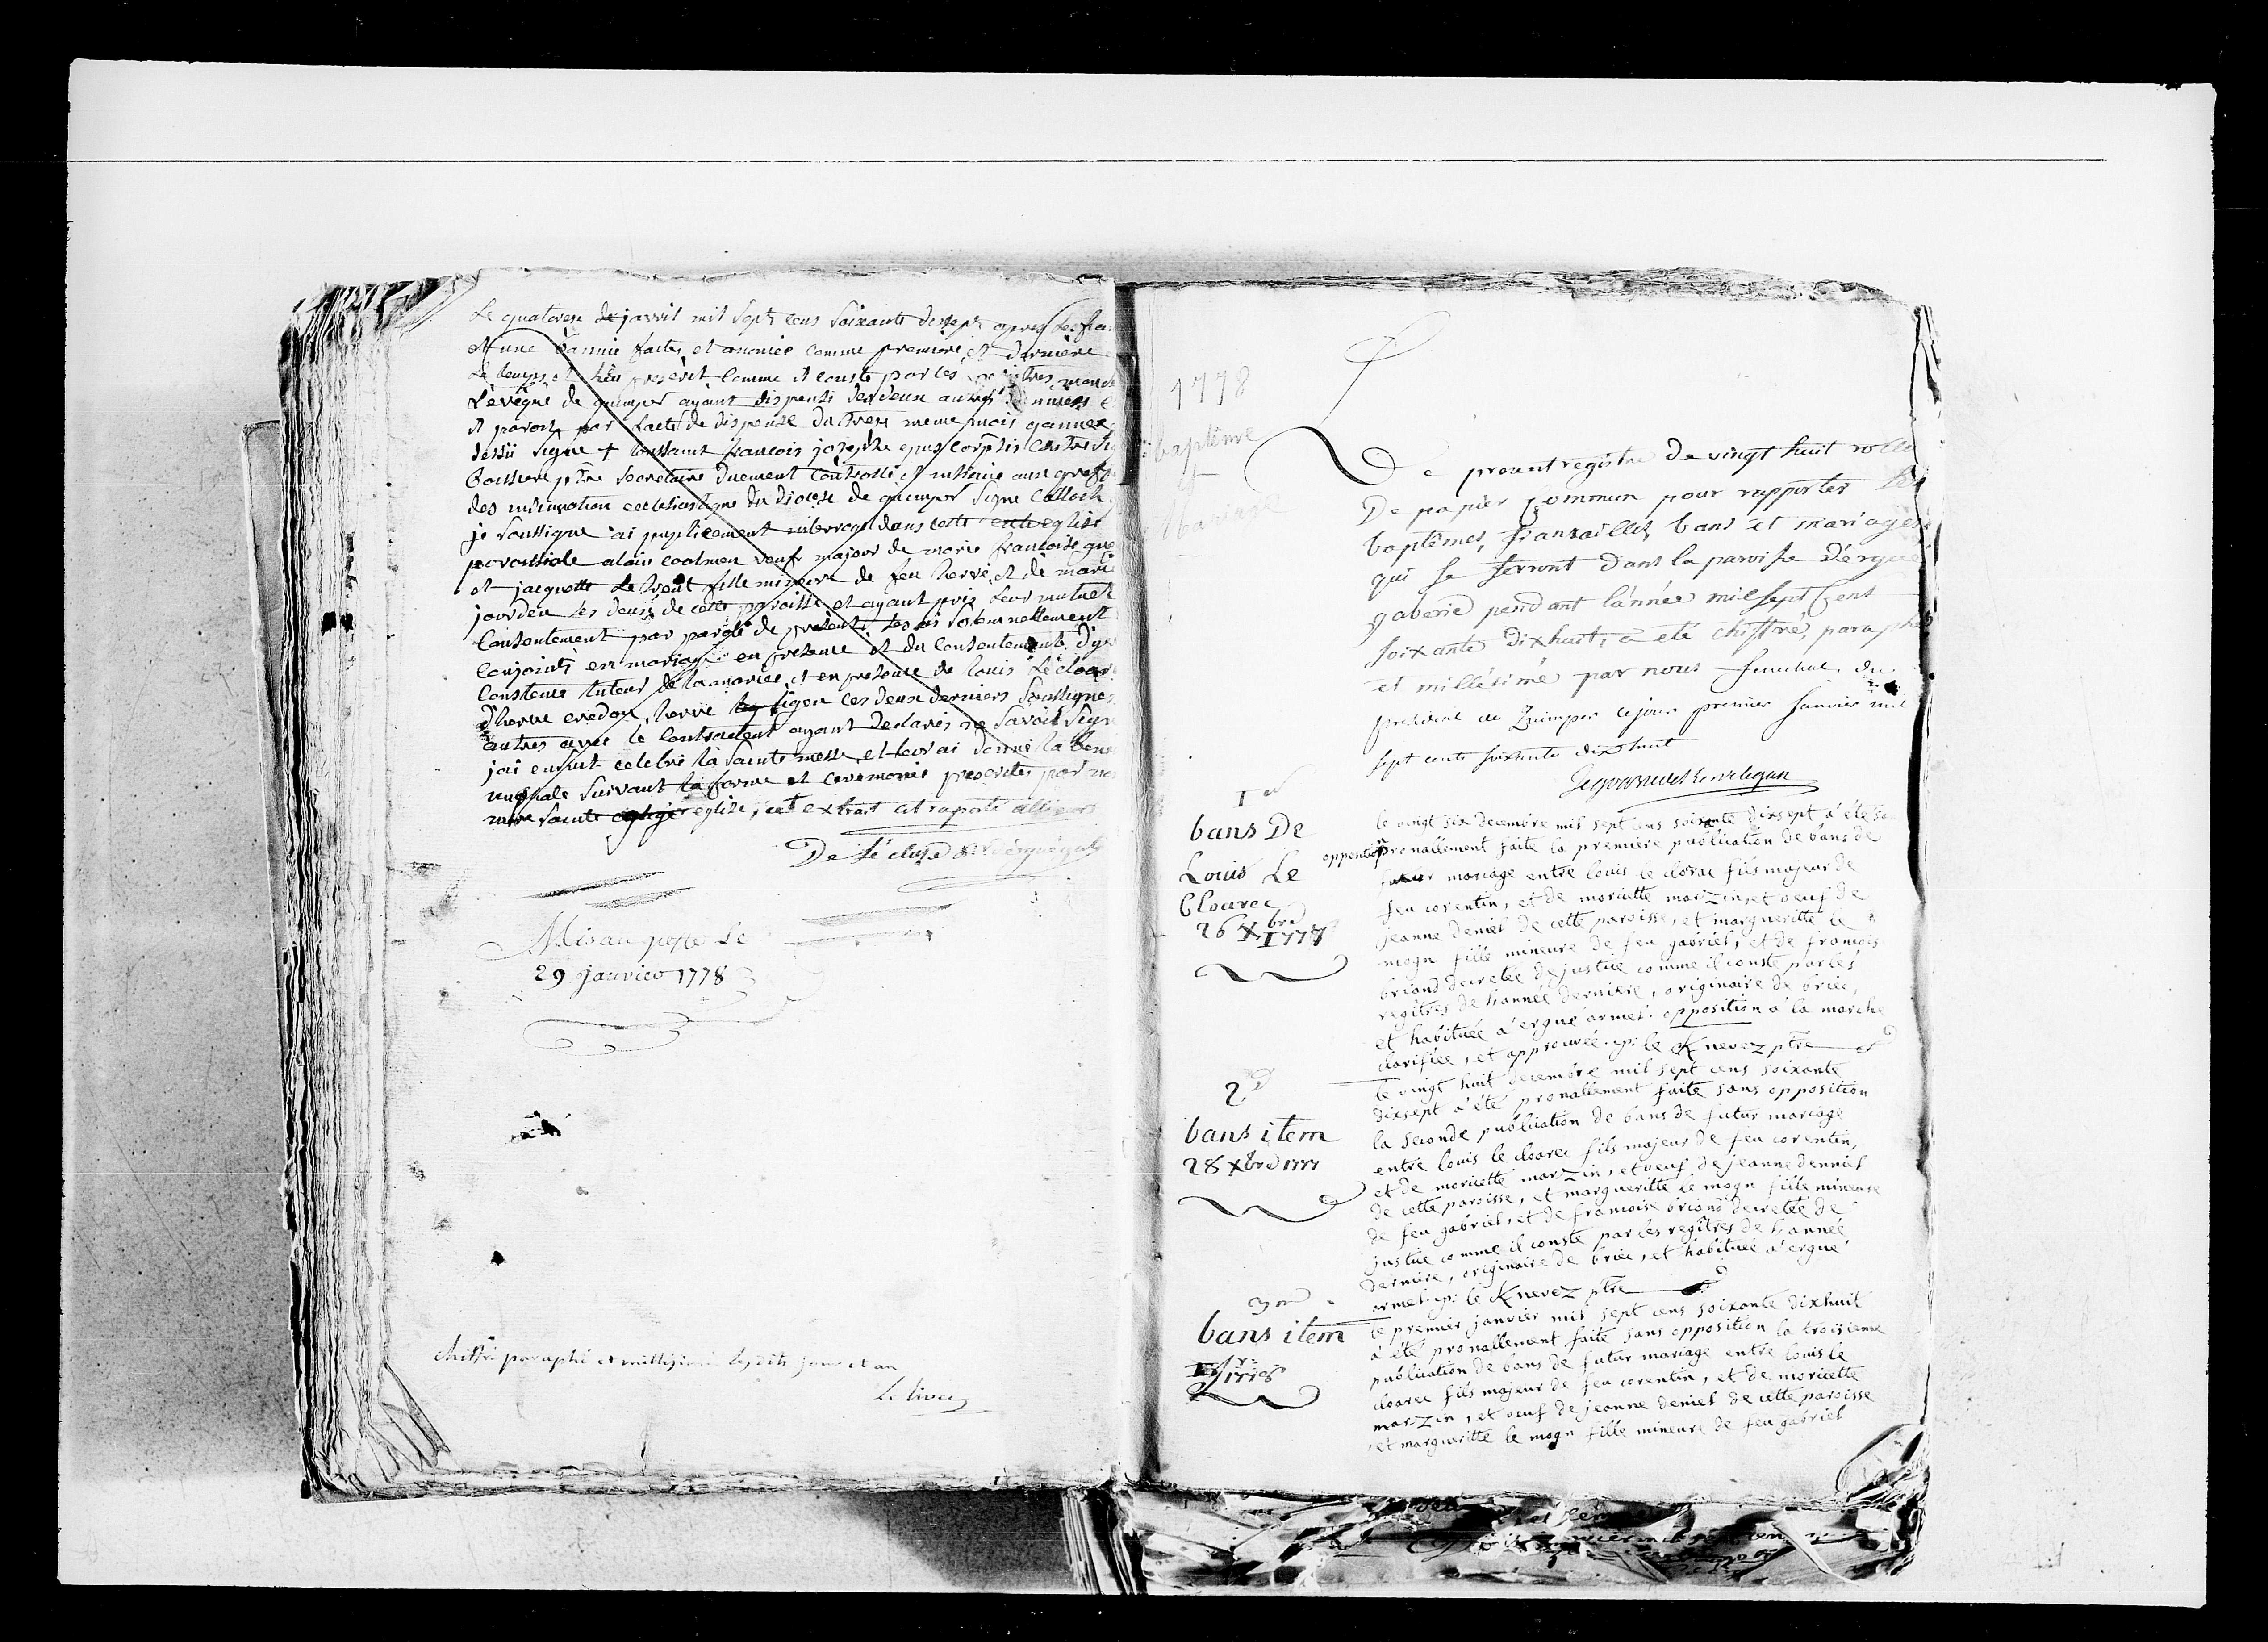 Le quatorze de janvil mil sept cens soixante dixsept apres les fian
et une bannie faites et anoncée comme premiere et derniere
Le temps et lieu prescrit comme il conste par les
L'evêque de quimper ayant dispensé des deux autres bannies
il paroit par l'acte de dispense du treze meme mois q'annee
dessù signé + toussaint francois josephe epus corisp. contre
Boissiere ptre secretaire duement controllé et insinué aux greffe
des insinuation ecclesiastique du diocese de quimper signe Calloch
je soussigne ai puplicement interrogé dans cette eglise
paroissiale alain coatmen veuf majour de marie francoise
et jacquette Le fille mineure de feu hervé et de marie
jourden les deux de cette paroisse et ayant pris leur mutuel
Consentement par parole de present les ai solemnellement
conjoints en mariage en presence et du consentement d'y
Constence tuteur de la mariée et en presence de louis Le cloar
d'herve credou, herve ligen ces deux derniers soussignes
autres avec le contractent ayant declarés ne savoir sign
j'ai ensuit celebré la sainte messe et leur ai donné la bene
nuptiale suivant la forme et ceremonie prescrites par no
mere sainte eglise, cet extrait et raporté allieurs
De l'écluse
Mis au greffe Le
29 janvier 1778
chiffré paraphé et millesimé lesdits jour et an
Le livec
1778
baptême
et
Le present registre de vingt huit rolle
De papier commun pour rapporter les
baptêmes, fiansailles, bans et mariages
qui se feront dans la paroisse d'ergué
gaberic pendant l'année mil sept cens
soixante dixhuit, a eté chiffré, paraphé
et millésimé par nous senechal du
presidial de Quimper ce jour premier janvier mil
sept cents soixante dix huit
1er
bans De
Louis Le
Clouarec
26 Xbre 1777
le vingt six decembre mil sept cens soixante dixsept a été sans
opposition pronallement faite la premiere publication de bans de
futur mariage entre louis le cloarec fils majeur de
feu corentin, et de moricette marzin, et veuf de
jeanne deniel de cette paroisse, et margueritte le
mogn fille mineure de feu gabriel, et de françois
briand decretée de justice comme il conste par les
regîtres de l'année derniere, originaire de briec,
et habituée a ergué armel. opposition a la marche
clarifiée, et approuvée. p: le Knevez ptre
2d
bans item
28 Xbre 1777
le vingt huit decembre mil sept cens soixante
dixsept a été pronallement faite sans opposition
la seconde publication de bans de futur mariage
entre louis le cloarec fils majeur de feu corentin,
et de moricette marzin, et veuf de jeanne denniel
de cette paroisse, et margueritte le mogn fille mineure
de feu gabriel, et de francoise briand decretée de
justice comme il conste par les regîtres de l'année
derniere, originaire de briec, et habituée a ergué
armel. p: le Knevez ptre
3me
bans item
1er jr 1778
le premier janvier mil sept cens soixante dixhuit
a été pronallement faite sans opposition la troisieme
publication de bans de futur mariage entre louis le
cloarec fils majeur de feu corentin, et de moricette
marzin, et veuf de jeanne deniel de cette paroisse
et margueritte le mogn fille mineure de feu gabriel